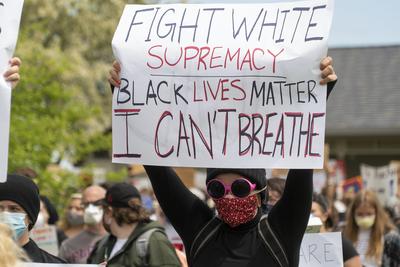 FIGHT WHITE
SUPREMACY
BLACK LIVES MATTER
I CAN'T BREATHE
ARE